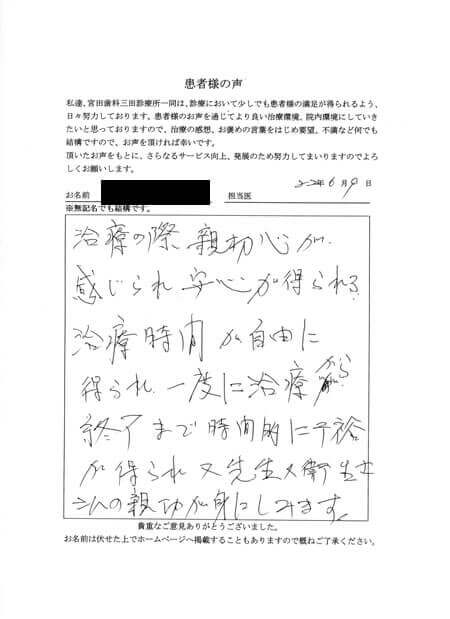 患者様の声
私達、宮田歯科三田診療所一同は、診療において少しでも患者様の満足が得られるよう、
日々努力しております。患者様のお声を通じてより良い治療環境、院内環境にしていき
たいと思っておりますので、治療の感想、お褒めの言葉をはじめ要望、不満など何でも
結構ですので、お声を頂ければ幸いです。
頂いたお声をもとに、さらなるサービス向上、発展のため努力してまいりますのでよろ
しくお願いします。
22年6月9日
お名前 担当医
※無記名でも結構です。
治療の際親切心が
感じられ安心が得られる
治療時間が自由に
得られ一度に治療から
終了まで時間的に余裕
が得られ又先生又衛生士
さんの親切が身にしみます。
貴重なご意見ありがとうございました。
お名前は伏せた上でホームページへ掲載することもありますので概ねご了承ください。